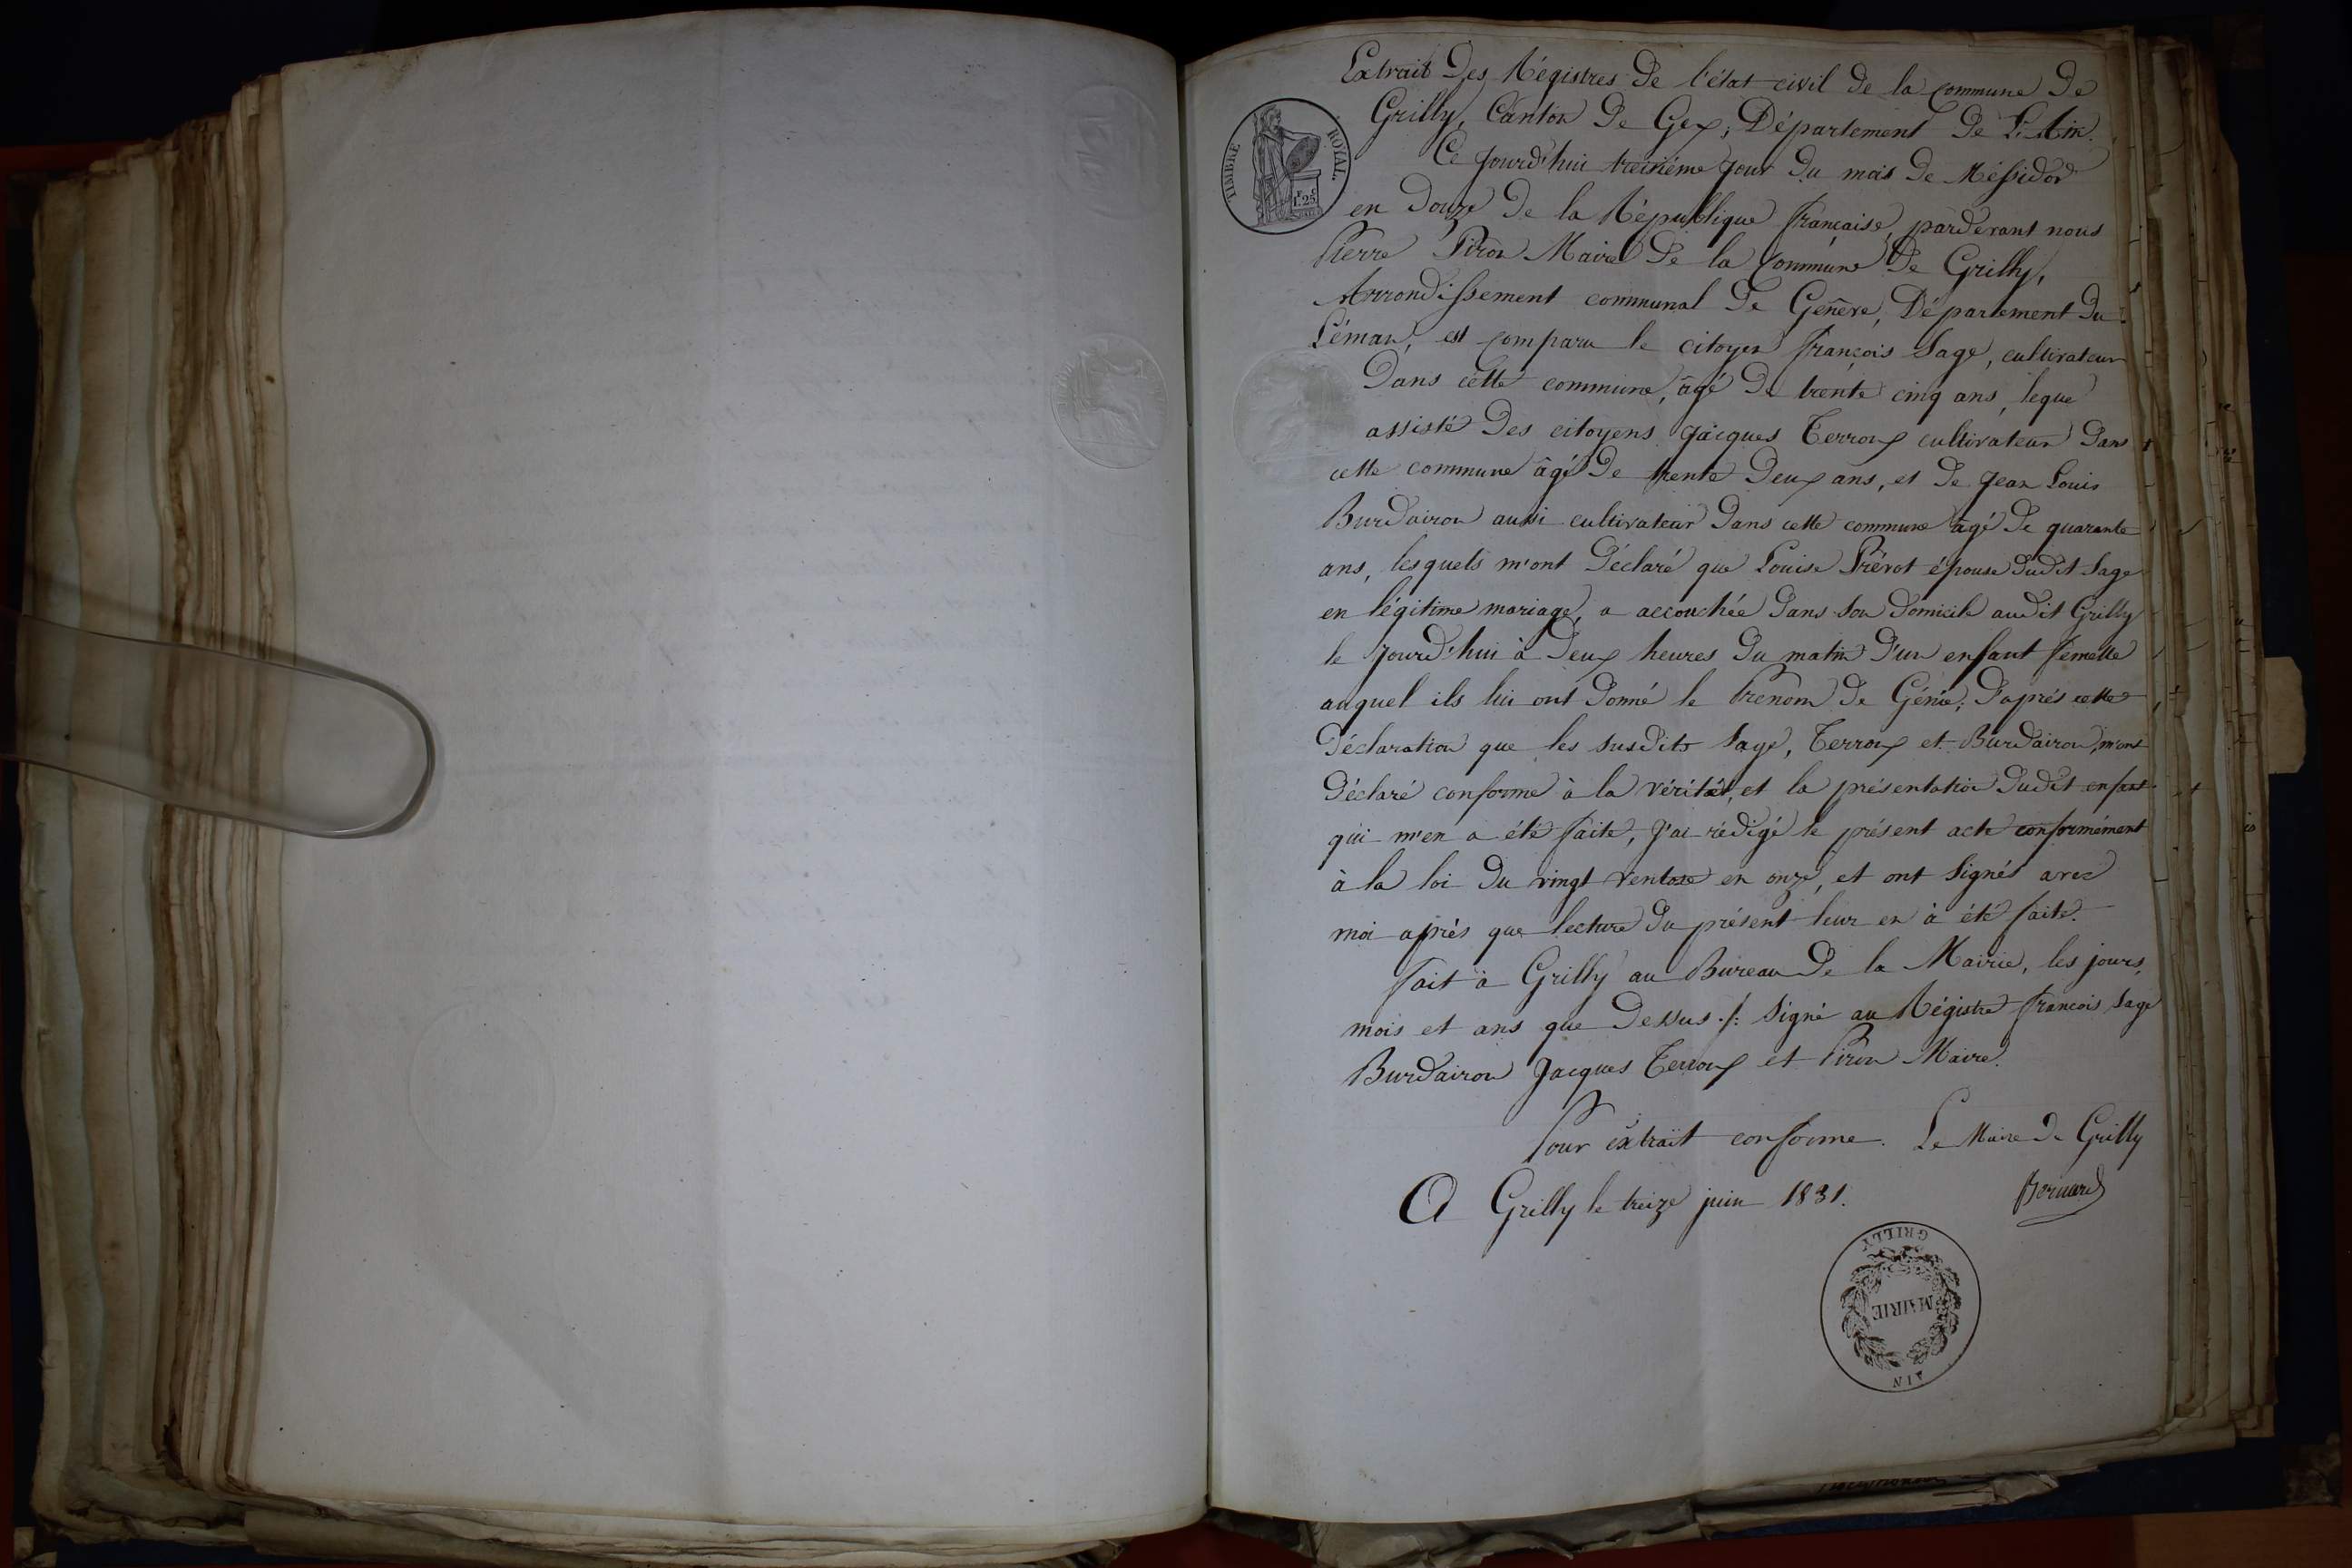 Extrait des Régistres de l'état civil de la Commune de
Grilly, Canton de Gex, Département de L'Ain.
TIMBRE ROYAL.
1F. 25C
Ce jourd'hui treizième jour du mois de Méssidor
en douze de la République française, pardevant nous
Pierre Piron Maire de la Commune de Grilly,
Arrondissement communal de Genêve, Département du
Léman, est comparu le citoyen françois Sage, cultivateur
dans cette commune, âgé de trente cinq ans, leque
assisté des citoyens Jacques Terroux cultivateur dans
cette commune âgé de trente deux ans, et de Jean Louis
Burdairon aussi cultivateur dans cette commune âgé de quarante
ans, lesquels m'ont déclaré que Louise Prévot épouse dudit Sage
en légitime mariage, a accouchée dans son domicile audit Grilly
le jourd'hui à deux heures du matin d'un enfant femelle
auquel ils lui ont donné le Prenom de Génie; d'aprés cette
déclaration que les susdits Sage, Terroux et Burdairon, m'ont
déclaré conforme à la vérité, et la présentation dudit enfant
qui m'en a été faite, j'ai rédigé le présent acte conformément
à la loi du vingt ventose en onze, et ont signés avec
moi après que lecture du présent leur en à été faite.
fait à Grilly au Bureau de la Mairie, les jours,
mois et ans que dessus ./: Signé au Régistre françois Sage
Burdairon Jacques Terroux et Piron Maire.
Pour extrait conforme. Le Maire de Grilly
A Grilly le treize juin 1831. Bernard
GRILLY
MAIRIE
AIN